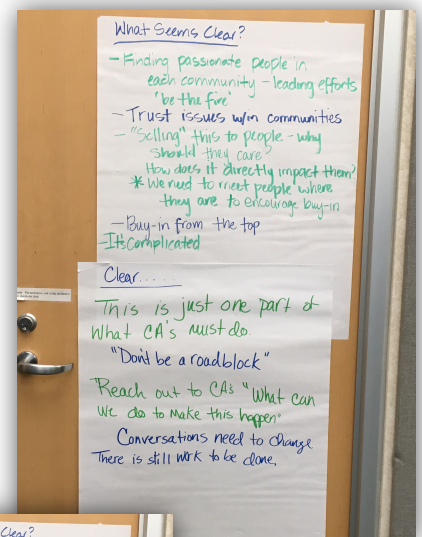 What Seems Clear?
- Finding passionate people in
each community - leading efforts
'be the fire'
- Trust issues w/in communities
- "Selling" this to people - why
should they care?
How does it directly impact them?
* We need to meet people where
they are to encourage buy-in
- Buy-in from the top
- It's Complicated
Clear......
This is just one part of
what CA's must do.
"Don't be a roadblock"
"Reach out to CA's "What can
we do to make this happen"
Conversations need to change
There is still work to be done.
Clear?